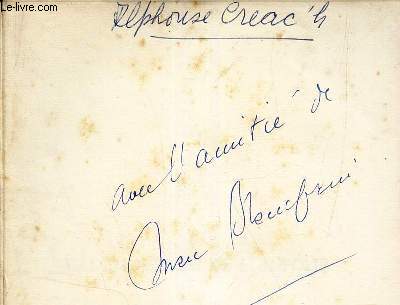 Le-livre.com
Alphonse Creac'h
avec l'amitié de